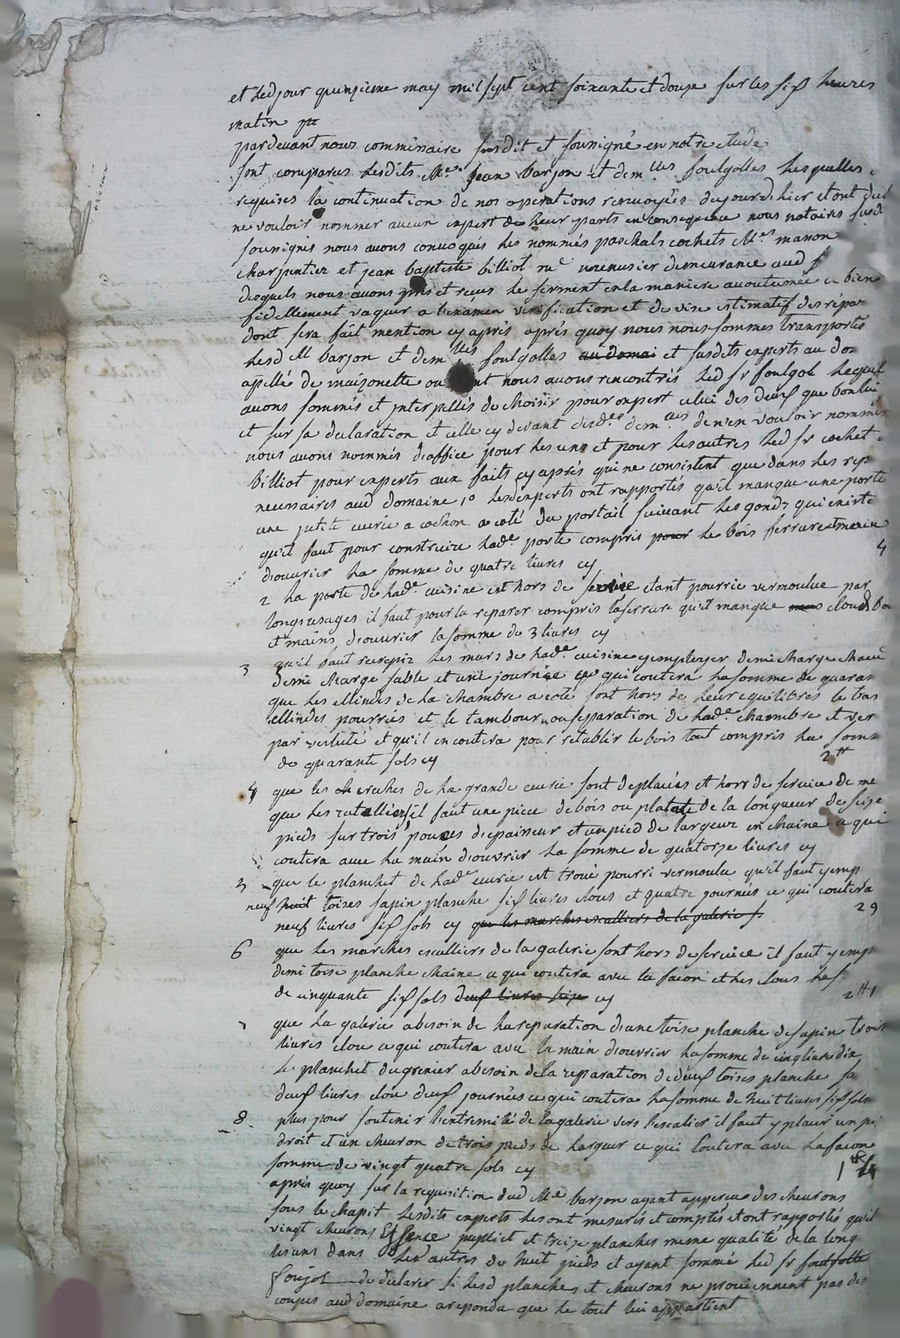 et ledjour quinzieme may mil sept cent soixante et douze sur les six heures
matin
pardevant nous commissaire susdit et soussigné en notre etude
sont comparus lesdits Me Jean barjon et demlles foulgolles lesquelles
requises la continuation de nos operations renvoyées dujourdhier et ont dit
ne vouloir nommer aucun expert de leur parts en consequence nous notaire susd
soussignes nous avons convoqués les nommés paschals cochets Me masson
charpentier et jean baptiste billiot me menusier demeurance aud
desquels nous avons pris et reçus le serment en la maniere accoutumée de bien
fidellement vaquer a lexamen verification et devise estimatif des repa
dont sera fait mention cy après après quoy nous nous sommes transportés
lesd Me barjon et demlles foulgolles au domai et susdits experts au do
apellé de maisonette ou nous avons rencontrés led sr foulgol lequel
avons sommés et interpellés de choisir pour expert celui des deux que bon lui
et sur sa declaration et celle cy devant desdes demlles de n'en vouloir nommer
nous avons nommés d'office pour les uns et pour les autres led sr cochet
billiot pour experts aux faits cy après qui ne consistent que dans les rep
necessaires aud domaine 1o lesd experts ont rapportés qu'il manque une porte
une petite ecurie a cochon a coté du portail suivant les gonds qui existe
qu'il faut pour construire lade porte compris pour le bois ferrure et main
d'ouvrier la somme de quatre livres cy 4
2 la porte de lade cuisine est hors de service etant pourrie vermoulue par
longs usages il faut pour la reparer compris la serrure qu'il manque clouds bo
et mains d'ouvrier la somme de 3 livres cy
3 qu'il faut recrepir les murs de lade cuisine y employer demi charge chaux
demi charge sable et une journée ce qui coutera la somme de quaran
que les ellindes de la chambre a coté sont hors de leur equilibres le bas
ellindes pourries et le tambour ou separation de lade chambre et ver
par vetusté et qu'il en coutera pour retablir le bois tout compris la som
de quarante sols cy 2tt
4 que les creches de la grande ecurie sont deplacées et hors de service de me
que les ratelliers il faut une piece de bois ou platte de la longueur de seize
pieds sur trois pouces depaisseur et un pied de largeur en chaine ce qui
coutera avec la main d'ouvrier la somme de quatorze livres cy
que le planchet de lade ecurie est troué pourri vermoulu qu'il faut y emp
neuf huit toises sapin planche six livres clous et quatre journées ce qui coutera
neuf livres six sols cy que les marches escalliers de la galerie s 29
6 que les marches escalliers de la galerie sont hors de service il faut y emp
demi toise planche chaine ce qui coutera avec la façon et les clous la s
de cinquante six sols deux livres seize cy 2tt1
7 que la galerie a besoin de la reparation d'une toise planche de sapin trois
livres clou ce qui coutera avec la main d'ouvrier la somme de cinq livres dix
le planchet du grenier a besoin de la reparation de deux toises planche sa
deux livres clou deux journées ce qui coutera la somme de huit livres six sols
8 plus pour soutenir l'extremité de la galerie vers l'escalier il faut y placer un pi
droit et un chevron de trois pieds de largeur ce qui coutera avec la façon
somme de vingt quatre sols cy 1tt 4
après quoy sur la requisition dud Me barjon ayant apperçus des chevrons
sous le chapit lesdits experts les ont mesurés et comptés et ont rapportés qu'il
vingt chevrons essence et treize planches meme qualité de la long
les uns dans les autres de huit pieds et ayant sommé led sr
foujol de declarer si lesd planches et chevrons ne proviennent pas des
coupes aud domaine a reponda que le tout lui appartient